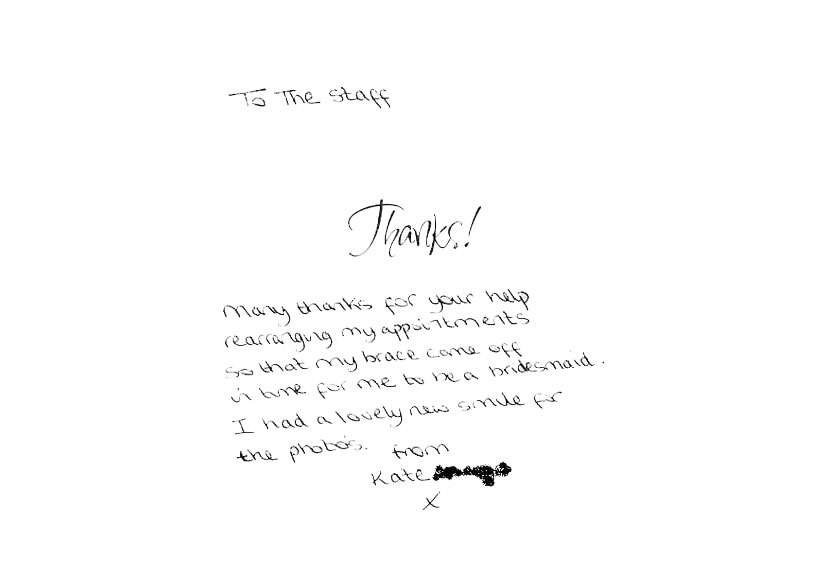 To The Staff
Thanks!
Many thanks for your help
rearranging my appointments
so that my brace came off
in time for me to be a bridesmaid.
I had a lovely new smile for
the photo's. from
Kate
X